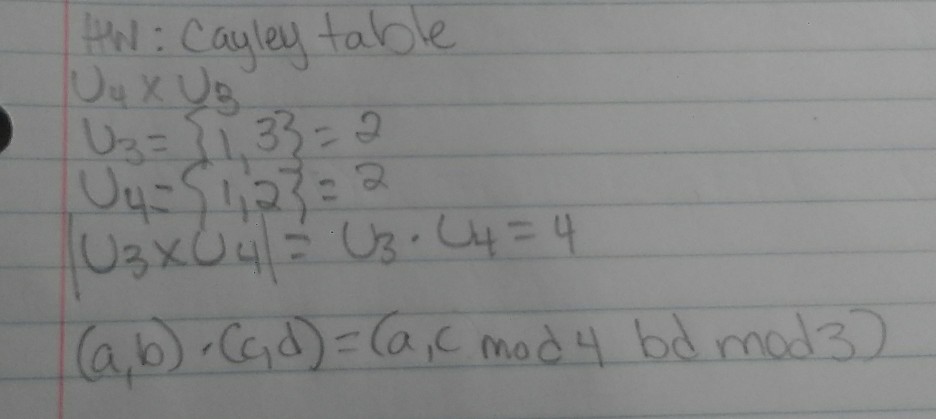 HW: Cayley table
U₄ × U₃
U₃ = {1, 3} = 2
U₄ = {1, 2} = 2
|U₃ × U₄| = U₃ · U₄ = 4
(a, b) · (c, d) = (a, c mod 4 bd mod 3)